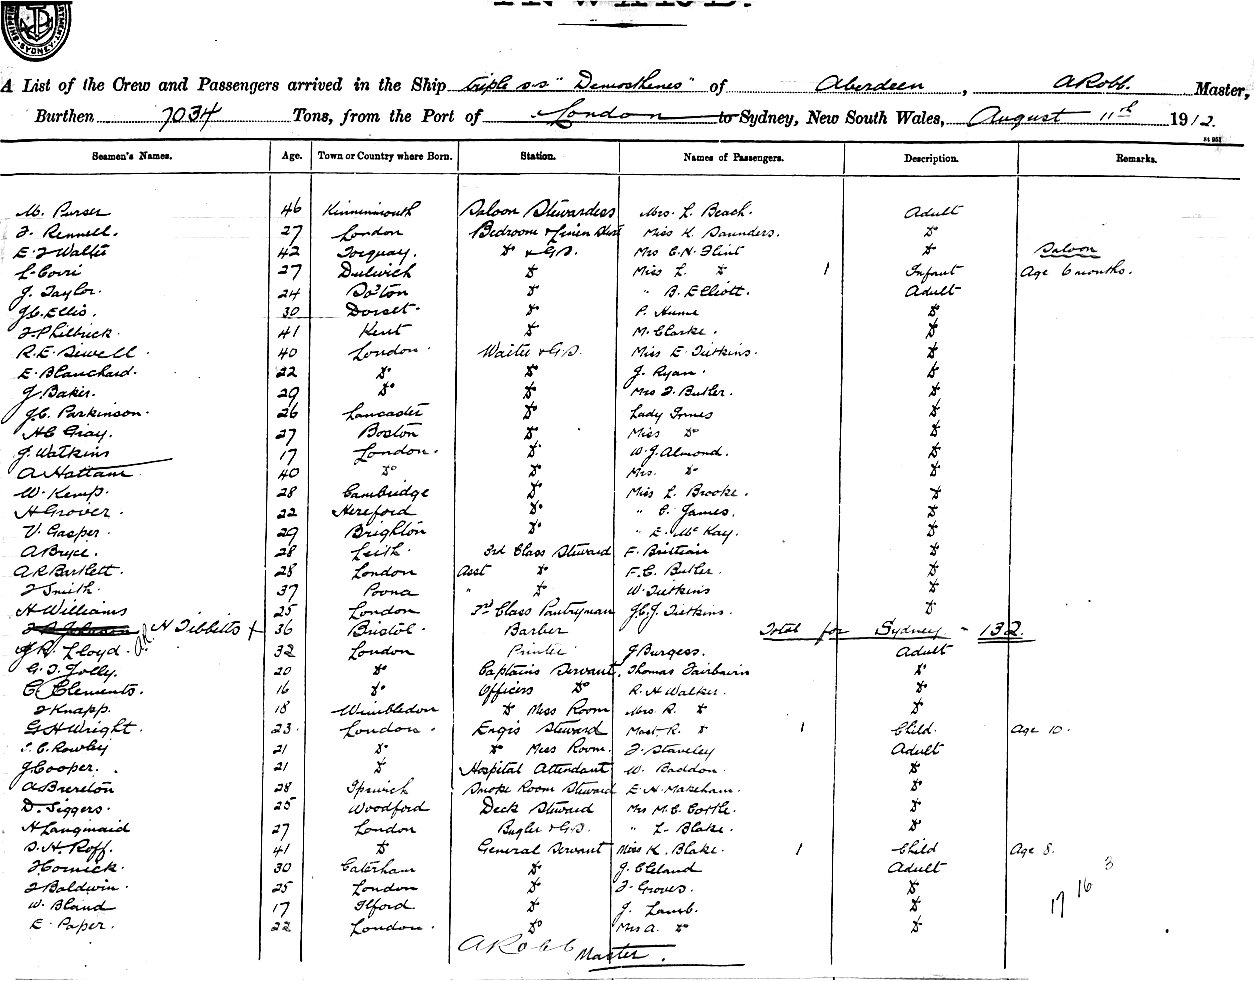 A List of the Crew and Passengers arrived in the Ship triple s.s "Demosthenes" of Aberdeen, A Robb. Master,
Burthen 7034 Tons, from the Port of London to Sydney, New South Wales, August 11th 1912.
Seamen's Names. Age. Town or Country where Born. Station. Names of Passengers. Description. Remarks.
M. Purser 46 Kinninmouth Saloon Stewardess Mrs. L. Beach. Adult
J. Rennell. 27 London Bedroom & Linen Miss K. Saunders. Do
E J Walts 42 Torquay. Do & G.S. Mrs C.N. Flint Do Saloon
L. Corri 27 Dulwich Do Miss L. Do 1 Infant Age 6 months.
J. Taylor. 24 Bolton Do " B. Elliott. Adult
J.C. Ellis. 30 Dorset. Do P. Hume Do
J. Philbrick. 41 Kent Do M. Clarke. Do
R.E. Sewell. 40 London. Waiter & G.S. Miss E. Tietkins. Do
E. Blanchard. 22 Do Do J. Ryan. Do
J. Baker. 29 Do Do Mrs J. Butler. Do
J.C. Parkinson. 26 Lancaster Do Lady Innes Do
H C Gray. 27 Boston Do Miss Do Do
J. Watkins 17 London. Do W.J. Almond. Do
A Hattam 40 Do Do Mrs. Do Do
W. Kemp. 28 Cambridge Do Miss L. Brooke. Do
H Grover. 22 Hereford Do. " C. James. Do
V. Gasper. 29 Brighton Do " E. McKay. Do
A Bryce. 28 Leith. 3rd Class Steward F. Brittain Do
A R Bartlett. 28 London Asst Do F.C. Butler. Do
J Smith. 37 Poona " Do W. Tietkins Do
H Williams 25 London 3rd Class Pantryman J.C.J. Tietkins. Do
H Tibbetts + 36 Bristol. Barber Total for Sydney - 132.
J R. Lloyd. 32 London Printer J Burgess. Adult
G. J. Jolly. 20 Do Captains Servant. Thomas Fairbairn Do
C. Clements. 16 Do. Officers Do R. H Walker. Do
J Knapp. 18 Wimbledon Do Mess Room Mrs R. Do Do
G H Wright. 23 London. Engrs Steward Mast. R. Do 1 Child. Age 10.
C. Rowley 21 Do Do Mess Room. J. Staveley Adult
J Cooper. 21 Do Hospital Attendant W. Baddon. Do
A Brereton 28 Ipswich Smoke Room Steward E. H. Makeham. Do
D. Siggers. 25 Woodford Deck Steward Mrs M.C. Cortle. Do
H Langmaid 27 London Bugler & G.S. " L. Blake. Do
S. H. Roff. 41 Do General Servant Miss K. Blake. 1 Child Age 8.
J Cornick. 30 Caterham Do J. Cleland Adult
J Baldwin. 25 London Do J. Groves. Do
W. Bland 17 Ilford. Do J. Lamb. Do
E. Paper. 22 London. Do Mrs A. Do Do
17 16 3
A Robb Master.